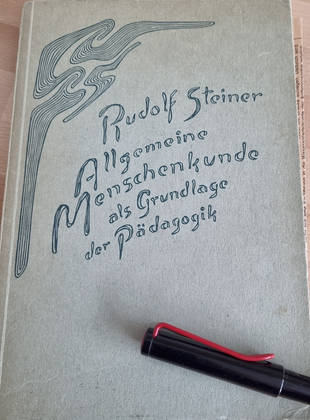 Rudolf Steiner
Allgemeine
Menschenkunde
als Grundlage
der Pädagogik